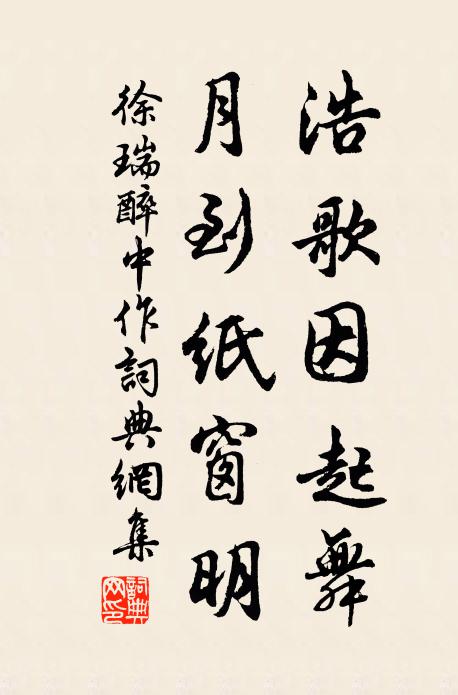 浩歌因起舞
月到紙窗明
徐瑞醉中作詞典網集
詞典網印